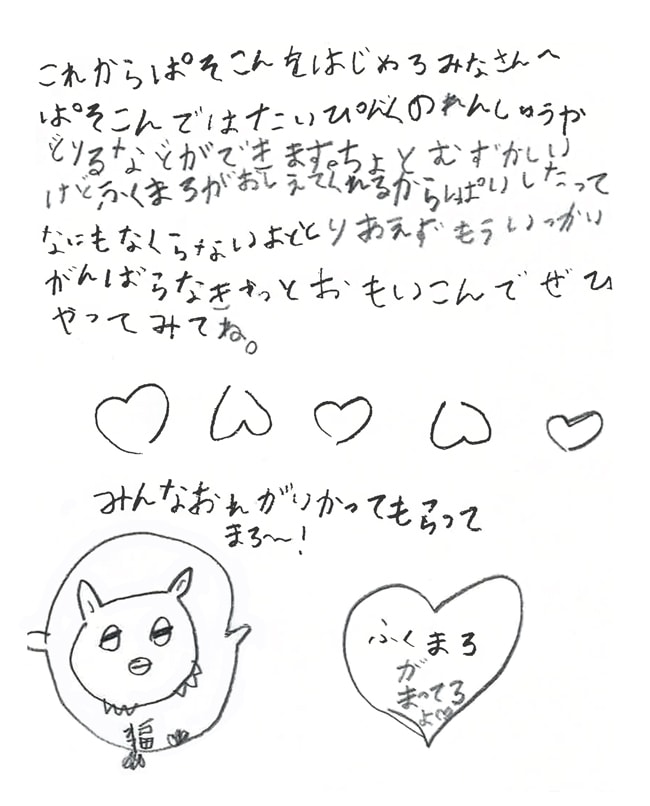 これからぱそこんをはじめろみなさんへ
ぱそこんではたいぴんくのれんしゅうか
とりるなどができます。ちょとむずかしい
けど、ふくまろがおしえてくれるからしぱいしたって
なにもなくらないよととりあえずもういっかい
がんばらなきゃっとおもいこんでぜひ
やってみてね。
みんなおれがいかってもらって
まろ〜!
福
ふくまろ
が
まってろ
よ♡